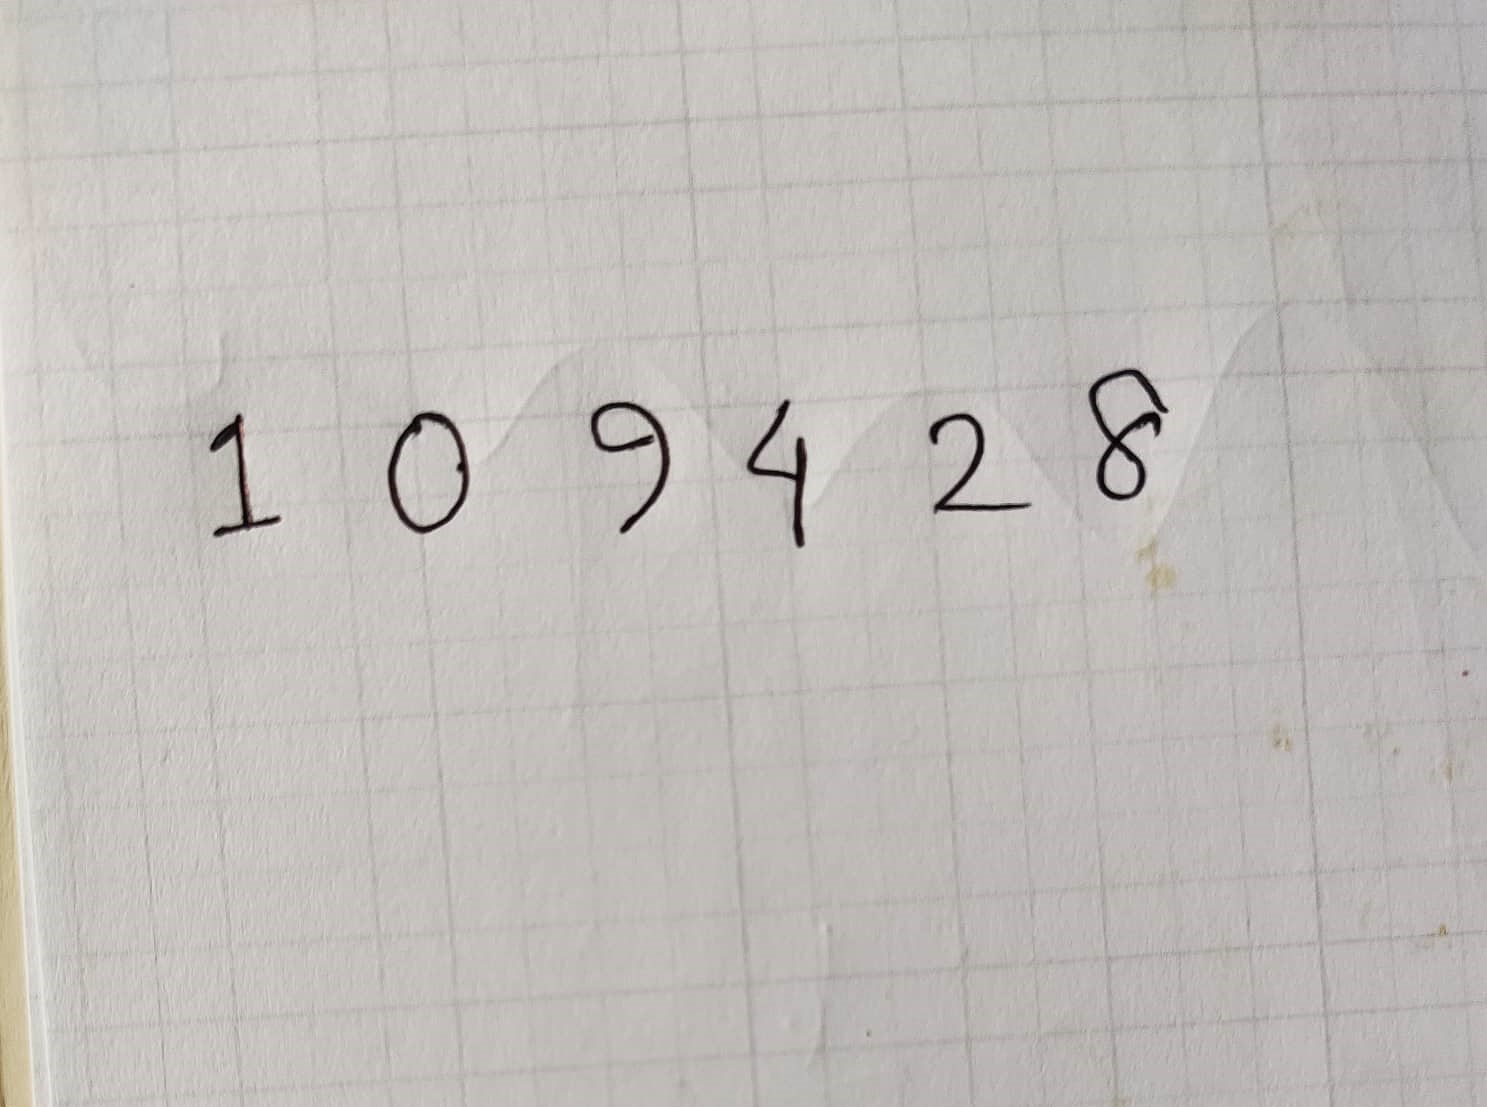 1 0 9 4 2 8